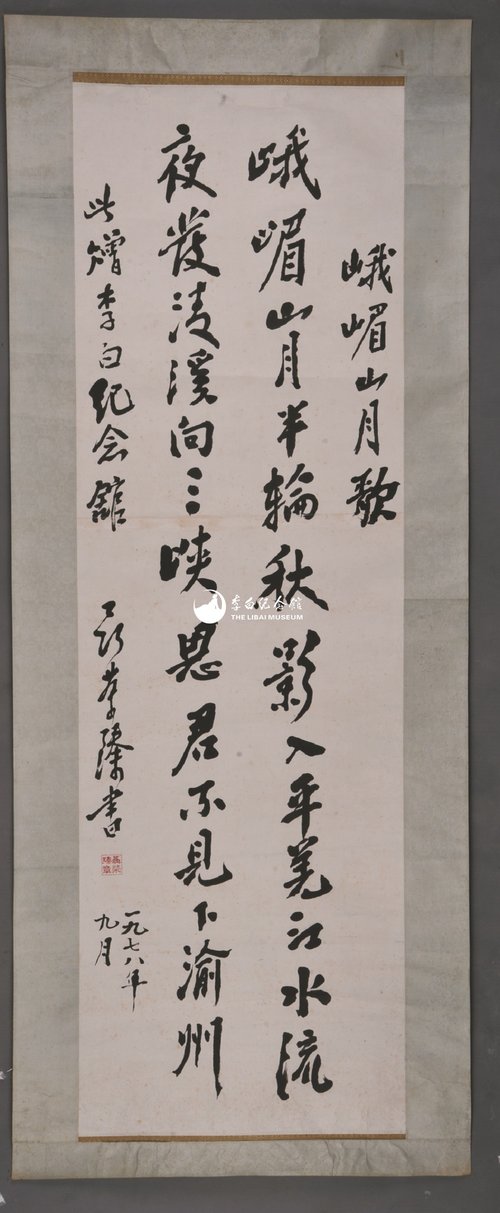 峨嵋山月歌
峨嵋山月半輪秋影入平羌江水流
夜發清溪向三峡思君不見下渝州
此贈李白纪念館
聂荣臻書
一九七八年
九月
李白纪念館
THE LIBAI MUSEUM